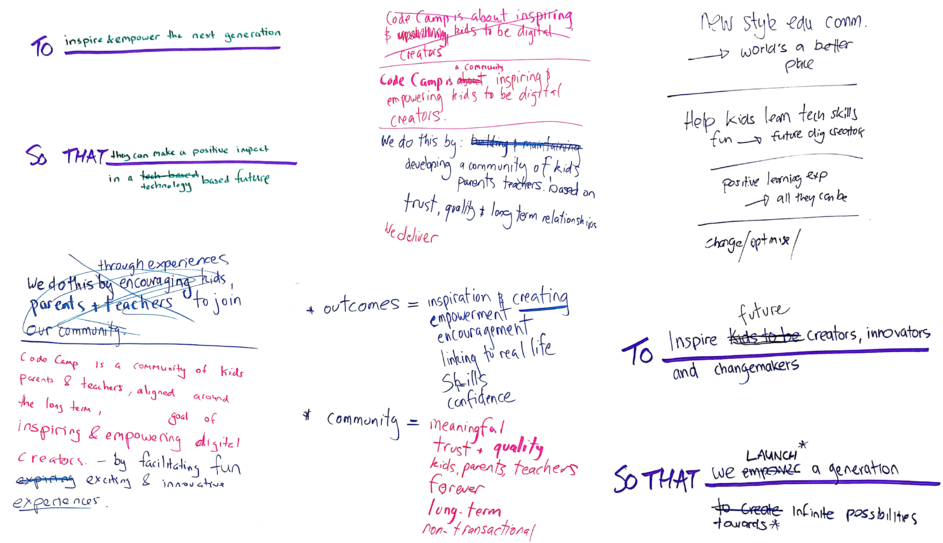 TO inspire & empower the next generation
SO THAT they can make a positive impact
in a tech based technology based future
through experiences
We do this by encouraging kids,
parents + teachers to join
our community.
Code Camp is a community of kids
parents & teachers, aligned around
the long term, goal of
inspiring & empowering digital
creators. – by facilitating fun
expiring exciting & innovative
experiences.
Code Camp is about inspiring
& kids to be digital
creators
a community
Code Camp is about inspiring &
empowering kids to be digital
creators.
We do this by: building & maintaining
developing a community of kids
parents teachers, based on
trust, quality + long term relationships
We deliver
* outcomes = inspiration & creating
empowerment
encouragement
linking to real life
skills
confidence
* community = meaningful
trust + quality
kids, parents, teachers
forever
long-term
non-transactional
new style edu comm.
→ world's a better
place
Help kids learn tech skills
fun → future dig creator
positive learning exp
→ all they can be
change/optimise/
future
TO Inspire kids to be creators, innovators
and changemakers
LAUNCH*
SO THAT we empower a generation
to create infinite possibilities
towards*